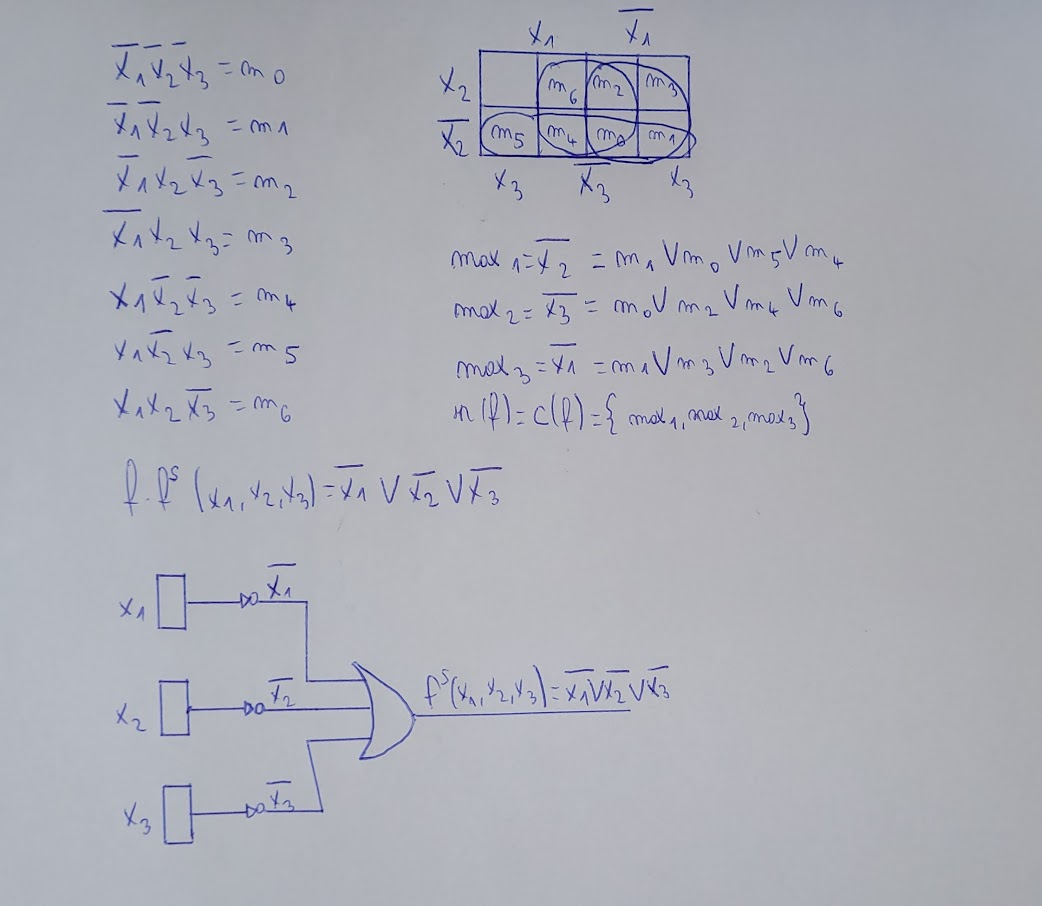 x̄₁ x̄₂ x̄₃ = m₀
x̄₁ x̄₂ x₃ = m₁
x̄₁ x₂ x̄₃ = m₂
x̄₁ x₂ x₃ = m₃
x₁ x̄₂ x̄₃ = m₄
x₁ x̄₂ x₃ = m₅
x₁ x₂ x̄₃ = m₆
x₁ x̄₁
x₂ m₆ m₂ m₃
x̄₂ m₅ m₄ m₀ m₁
x₃ x̄₃ x₃
max₁ = x̄₂ = m₁ ∨ m₀ ∨ m₅ ∨ m₄
max₂ = x̄₃ = m₀ ∨ m₂ ∨ m₄ ∨ m₆
max₃ = x̄₁ = m₁ ∨ m₃ ∨ m₂ ∨ m₆
m(f) = C(f) = { max₁, max₂, max₃ }
f. fˢ (x₁, x₂, x₃) = x̄₁ ∨ x̄₂ ∨ x̄₃
x₁ x̄₁
x₂ x̄₂
x₃ x̄₃
fˢ(x₁, x₂, x₃) = x̄₁ ∨ x̄₂ ∨ x̄₃